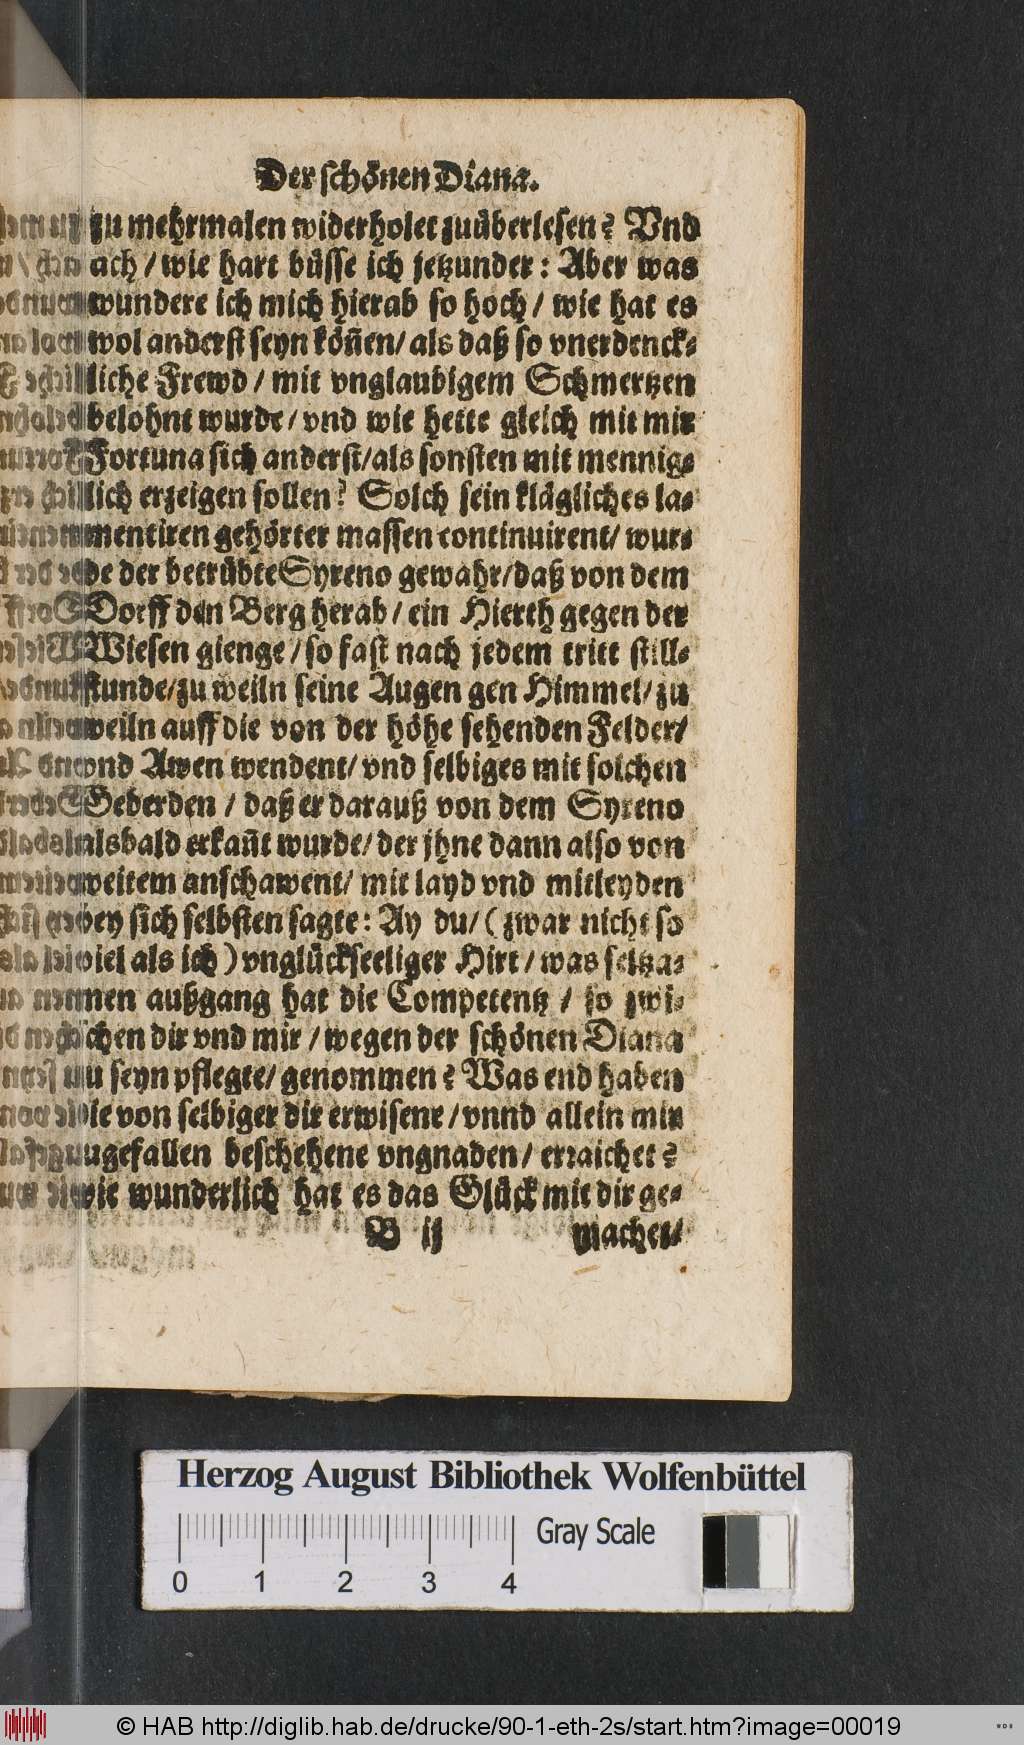 Der schönen Diana.
zu mehrmalen widerholet zuüberlesen? Vnd
ach / wie hart büsse ich jetzunder: Aber was
wundere ich mich hierab so hoch / wie hat es
wol anderst seyn köñen / als daß so vnerdenck⸗
liche Frewd / mit vnglaubigem Schmertzen
belohnt wurde / vnd wie hette gleich mit mir
Fortuna sich anderst / als sonsten mit mennig⸗
lich erzeigen sollen? Solch sein klägliches la⸗
mentiren gehörter massen continuirent / wur⸗
de der betrübte Syreno gewahr / daß von dem
Dorff den Berg herab / ein Hierth gegen der
Wiesen gienge / so fast nach jedem tritt still⸗
stunde / zu weiln seine Augen gen Himmel / zu
weiln auff die von der höhe sehenden Felder /
vnd Awen wendent / vnd selbiges mit solchen
Gederden / daß er darauß von dem Syreno
alsbald erkañt wurde / der jhne dann also von
weitem anschawent / mit layd vnd mitleyden
bey sich selbsten sagte: Ay du / (zwar nicht so
viel als ich) vnglückseeliger Hirt / was seltza⸗
men außgang hat die Competentz / so zwi⸗
schen dir vnd mir / wegen der schönen Diana
zu seyn pflegte / genommen? Was end haben
die von selbiger dir erwisene / vnnd allein mir
zugefallen beschehene vngnaden / erraichet?
wie wunderlich hat es das Glück mit dir ge⸗
B ij machet /
Herzog August Bibliothek Wolfenbüttel
Gray Scale
0 1 2 3 4
© HAB http://diglib.hab.de/drucke/90-1-eth-2s/start.htm?image=00019